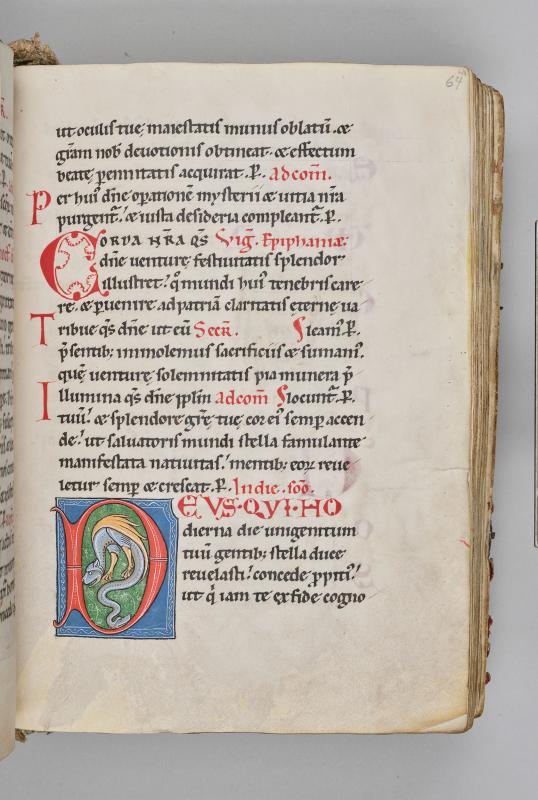 64
ut oculis tuę maiestatis munus oblatū. &
gr̄am nob̄ deuotionis obtineat. & effectum
beatę p̄ennitatis acquirat. P̲. ad com̄.
Per hui᷒ dn̄e op̄ationē mysterii & uitia nr̄a
purgent᷑. & iusta desideria compleant᷑. P̲.
CORDA NR̄A QS̄ Vig̅. Epiphaniæ.
dn̄e venturę festiuitatis splendor
illustret. q̊ mundi hui᷒ tenebris care
re. & p̄uenire ad patriā claritatis eternę ua
Tribue qs̄ dn̄e ut eū Secr̄. leam᷒. P̲.
p̄sentib; immolemus sacrificiis & sumam᷒.
quę venturę solemnitatis pia munera p̄
Illumina qs̄ dn̄e pp̄lm̄ ad com̄ locunt᷑. P̲.
tuū. & splendore gr̄ę tuę cor ei᷒ semp̄ accen
de. ut saluatoris mundi stella famulante
manifestata natiuitas. mentib; eor̄ reue
letur semp̄ & crescat. P̲. In die. sc̄o.
DEVS·QVI·HO
dierna die unigenitum
tuū gentib; stella duce
reuelasti. concede p̄piti᷒.
ut q̄ iam te ex fide cogno